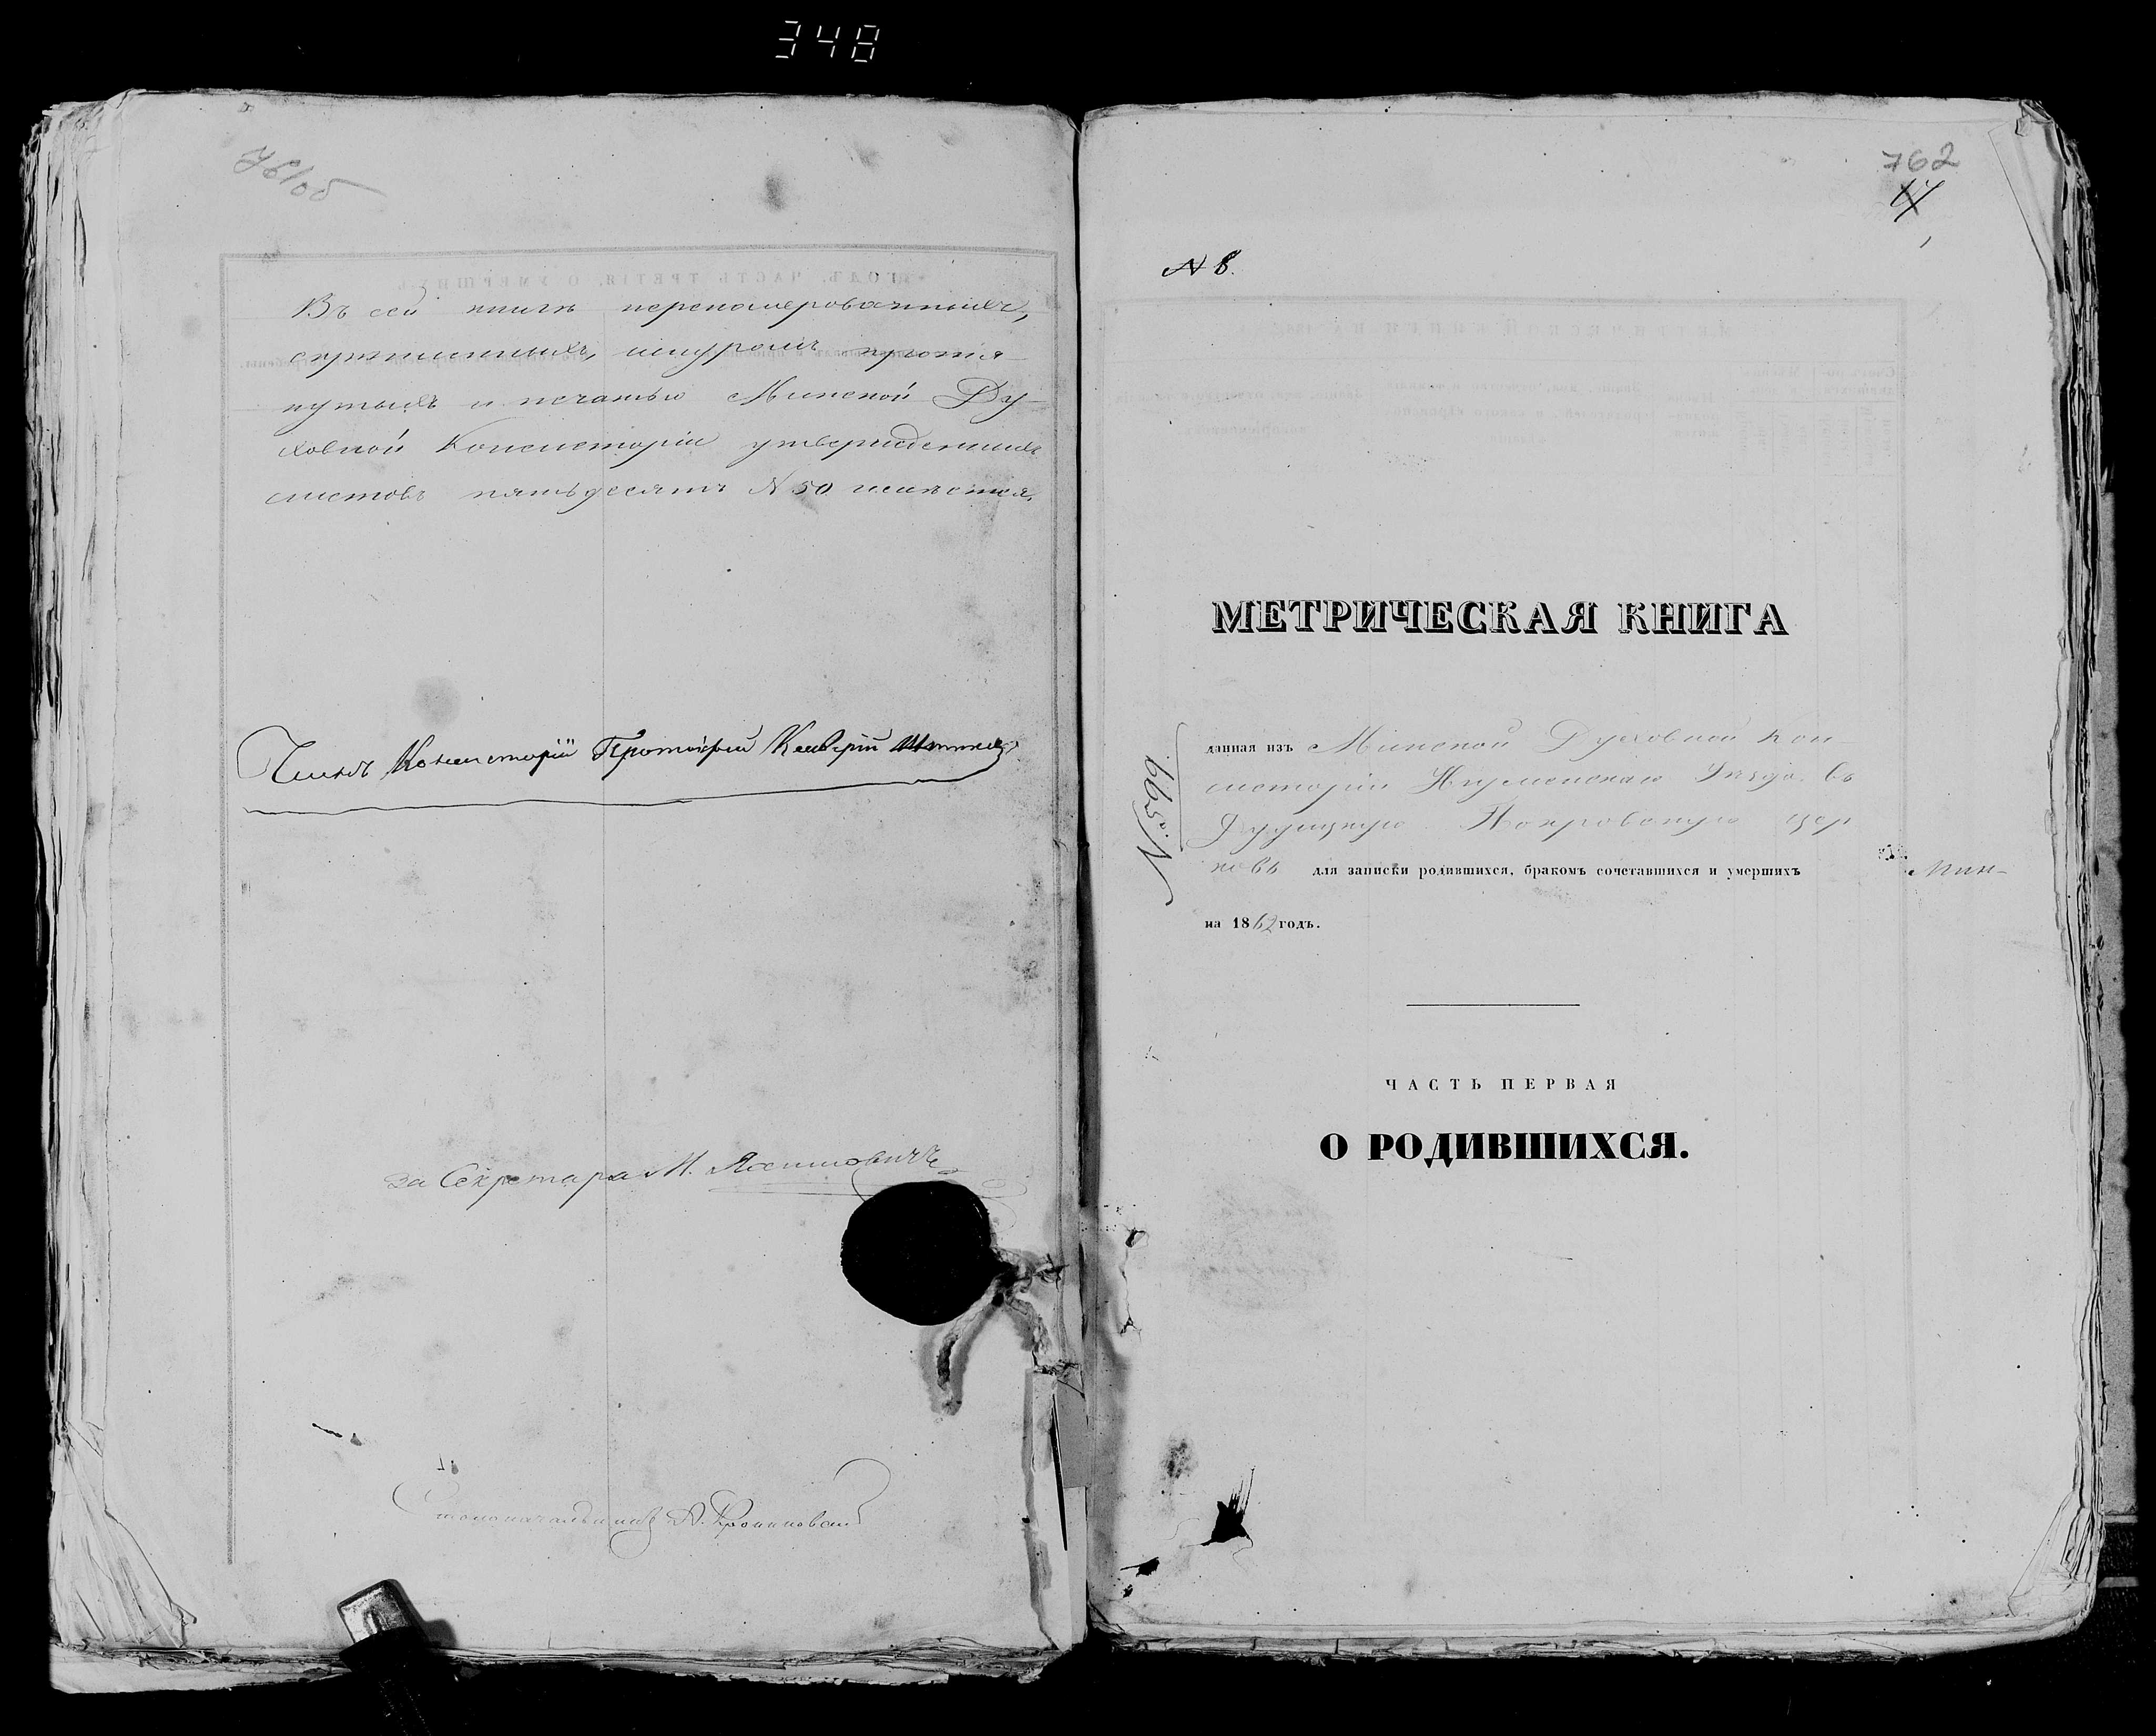 348
761об
Въ сей книгѣ перенумерованныхъ,
скрѣпленныхъ, шнуромъ протя-
нутыхъ и печатью Минской Ду-
ховной Консисторіи утвержденныхъ
листовъ пятьдесятъ N 50 имѣется.
Членъ Консисторіи Протоіерей
За Секретаря М.
Столоначальникъ
762
N 8.
МЕТРИЧЕСКАЯ КНИГА
данная изъ Минской Духовной Кон-
систоріи Игуменскаго Уѣзда въ
Покровскую цер
ковь для записки родившихся, бракомъ сочетавшихся и умершихъ
Мин-
на 1862 годъ.
N. 599
ЧАСТЬ ПЕРВАЯ
О РОДИВШИХСЯ.